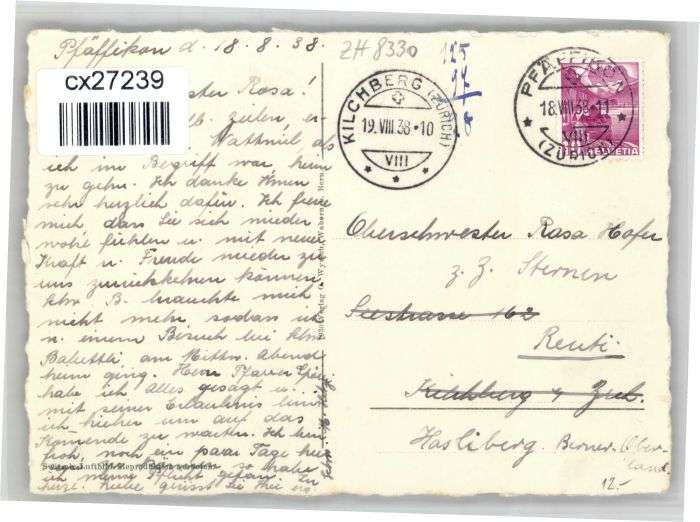 Pfäffikon d. 18.8.38.
ZH 8330
cx27239
Schwester Rosa!
zeilen, er-
Wattwil, als
ich im Begriff war heim
zu gehn. Ich danke Ihnen
sehr herzlich dafür. Ich freue
mich dass Sie sich wieder
wohl fühlen u. mit neuer
Kraft u. Freude wieder zu
uns zurückkehren können.
Schw. B. brauchte mich
nicht mehr, sodass ich
n. einem Besuch bei Schw.
Babettli am Mittw. Abend
heim ging. Herr Pfarrer
habe ich Alles gesagt u.
mit seiner Erlaubnis bin
ich hieher um auf das
Kommende zu warten. Ich bin
froh, noch ein paar Tage hier
so habe
ich meine Pflicht getan.
Liebe grüsst Sie Ihre erg.
KILCHBERG (ZÜRICH)
19.VIII.38-10
VIII
PFÄFFIKON
18.VIII.38-11
VIII
(ZÜRICH)
HELVETIA
Oberschwester Rosa Hofer
z. Z. Sternen
Seestrasse 162
Reuti.
Kilchberg b Zch.
Hasliberg. Berner-Ober-
land.
12.-